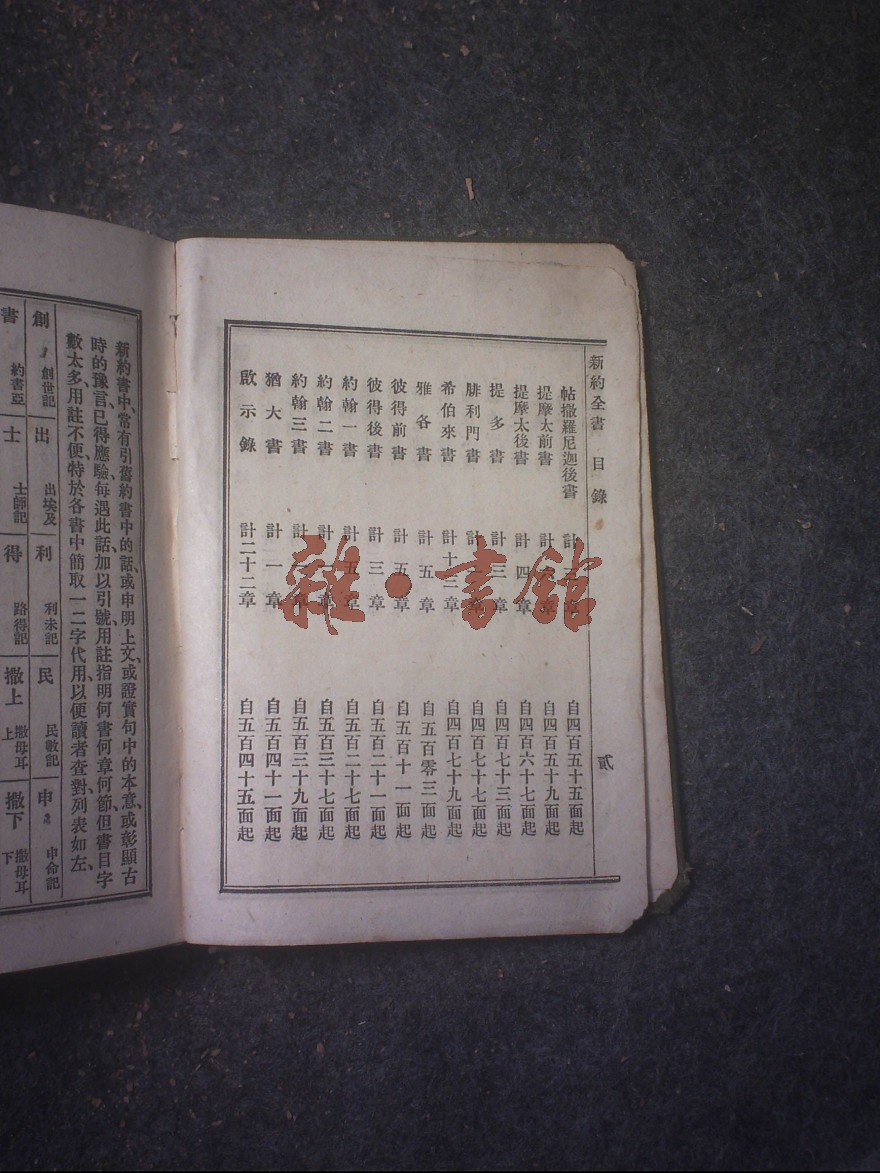 新約全書 目錄 貳
帖撒羅尼迦後書 計 章 自四百五十五面起
提摩太前書 計 章 自四百五十九面起
提摩太後書 計四章 自四百六十七面起
提多書 計三章 自四百七十三面起
腓利門書 計 章 自四百七十七面起
希伯來書 計十三章 自四百七十九面起
雅各書 計五章 自五百零三面起
彼得前書 計五章 自五百十一面起
彼得後書 計三章 自五百二十一面起
約翰一書 計五章 自五百二十七面起
約翰二書 計 章 自五百三十七面起
約翰三書 計 章 自五百三十九面起
猶大書 計一章 自五百四十一面起
啟示錄 計二十二章 自五百四十五面起
雜·書館
新約書中、常有引舊約書中的話、或申明上文、或證實句中的本意、或彰顯古
時的豫言、已得應驗、每遇此話加以引號、用註指明何書何章何節、但書目字
數太多、用註不便、特於各書中簡取一二字代用、以便讀者查對、列表如左、
創 創世記 出 出埃及 利 利未記 民 民數記 申 申命記
書 約書亞 士 士師記 得 路得記 撒上 撒母耳上 撒下 撒母耳下